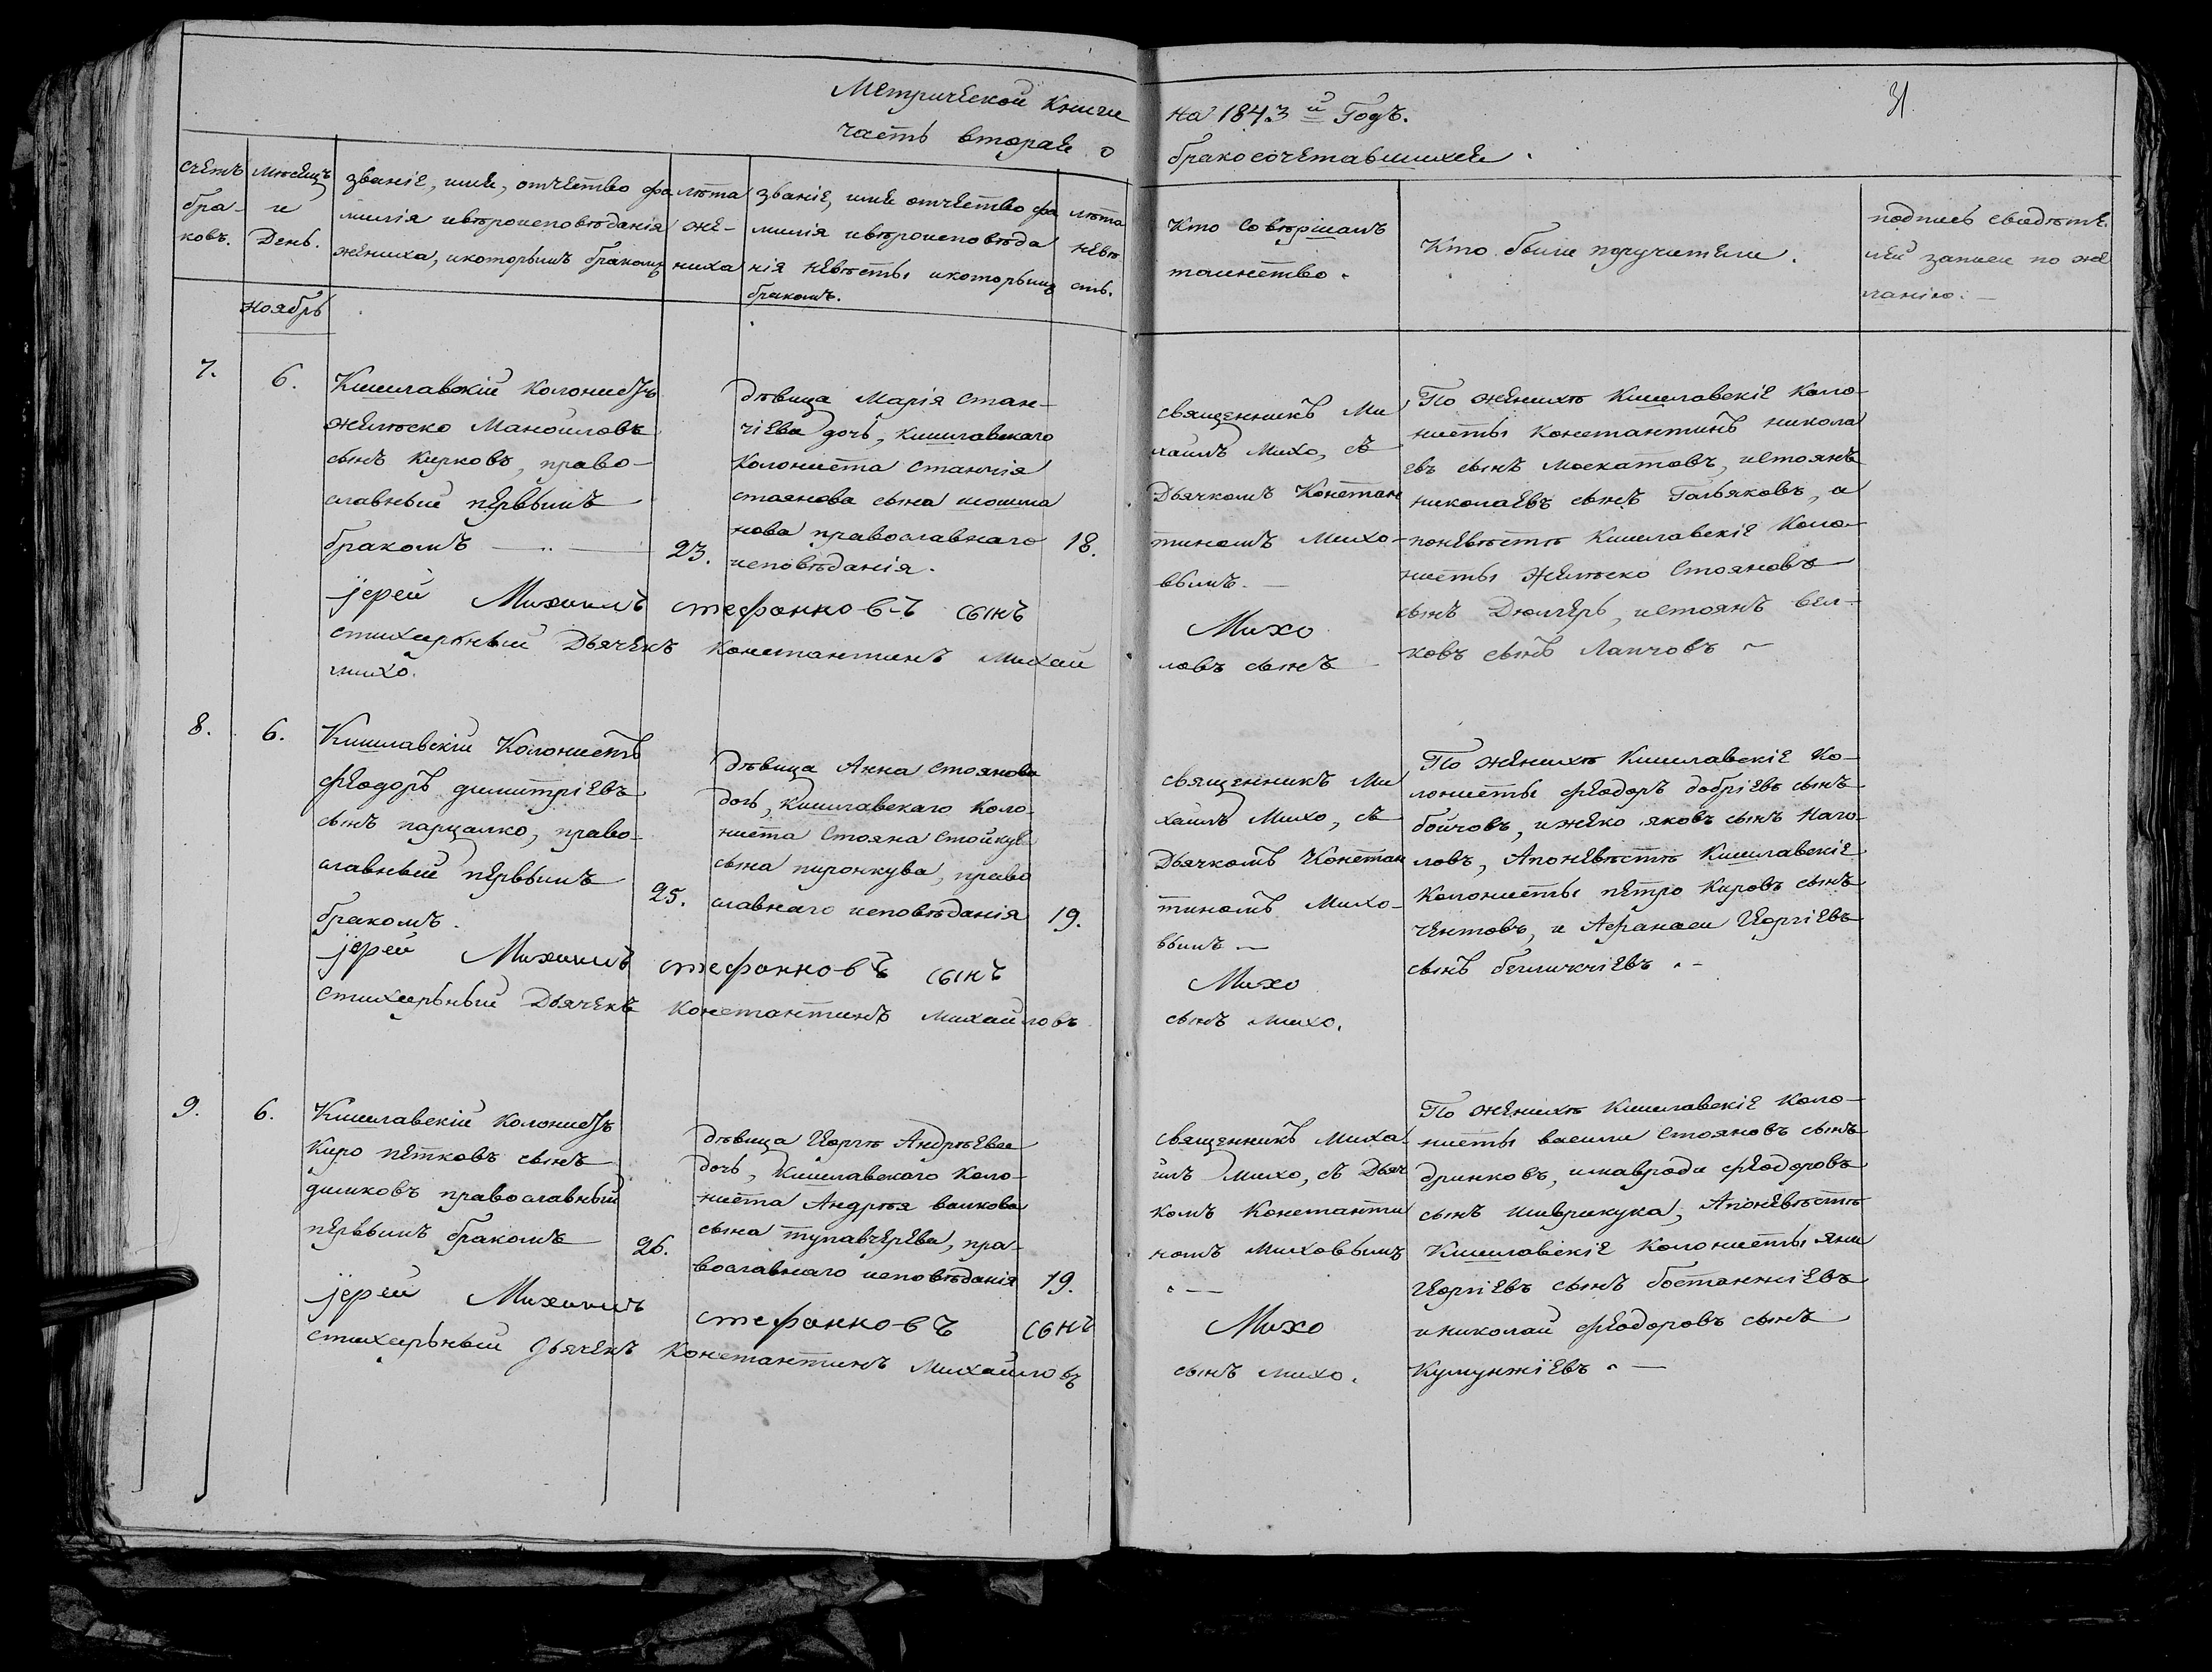 Метрической Книги
на 1843 й Годъ.
31
часть вторая о
бракосочетавшихся.
счетъ бра- ковъ.
мѣсяцъ и День.
званіе, имя, отчество фа
милія ивѣроисповѣданія
жениха, икоторымъ бракомъ
лѣта же- ниха
званіе, имя отчество фа
милія ивѣроисповѣда
нія невѣсты икоторымъ
бракомъ.
лѣта невѣ сты.
Кто Совершалъ
таинство.
Кто были поручители.
подпись свидѣте.
лей записи по же
ланію.
ноябрь
7.
6.
Кишлавскій колонистъ
Желѣско Маноиловъ
сынъ Кирковъ, право-
славный первымъ
бракомъ
23.
дѣвица Марія Стан-
чіева дочь, кишлавскаго
колониста Станчія
стоянова сына
нова православнаго
исповѣданія.
18.
священникъ Ми
хаилъ Михо, съ
Дьячкомъ Констан
тиномъ Михо-
вымъ.
По женихѣ Кишлавскіе коло-
нисты Константинъ никола
евъ сынъ москатовъ, истоянъ
николаевъ сынъ Гальяковъ, а
поневѣстѣ Кишлавскіе коло-
нисты Желѣско Стояновъ
сынъ Дюлгерь, истоянъ вел-
ковъ сынъ Лапчовъ
іерей Михаилъ стефанковъ сынъ Михо
стихарный Дьячекъ Константинъ Михаи ловъ сынъ
михо.
8.
6.
Кишлавскіи Колонистъ
феодоръ димитріевъ
сынъ парцалко, право-
славный первымъ
бракомъ.
25.
дѣвица Анна Стоянова
дочь, кишлавскаго коло-
ниста Стояна Стойкув
сына пиронкува, право
славнаго исповѣданія
19.
священникъ Ми
хаилъ Михо, съ
Дьячкомъ Констан
тиномъ Михо-
вымъ
По женихѣ Кишлавскіе ко-
лонисты феодоръ добріевъ сынъ
бойчовъ, ижеко яковъ сынъ Наго-
ловъ, Апоневѣстѣ Кишлавскіе
колонисты петро Кировъ сынъ
ченговъ, и Афанаси Георгіевъ
сынъ
іерей Михаилъ стефанковъ сынъ Михо
Стихарьный Дьячекъ Константинъ Михаиловъ сынъ михо.
9.
6.
Кишлавскіи колонистъ
Киро петковъ сынъ
димковъ православный
первымъ бракомъ
26.
дѣвица Георгѣ Андрѣева
дочь, кишлавскаго коло-
ниста Андрѣя валкова
сына тупавчерева, пра-
вославнаго исповѣданія
19.
священникъ Миха
илъ Михо, съ Дьяч
комъ Константи
номъ Миховымъ
По женихѣ Кишлавскіе коло-
нисты васили Стояновъ сынъ
дринковъ, имавроди феодоровъ
сынъ шиврикука, Апоневѣстѣ
Кишлавскіе колонисты яни
Георгіевъ сынъ бостанжіевъ
иниколаи феодоровъ сынъ
Кумунжіевъ
іерей Михаилъ стефанковъ сынъ Михо
стихарьный Дьячекъ Константинъ Михайловъ сынъ михо.